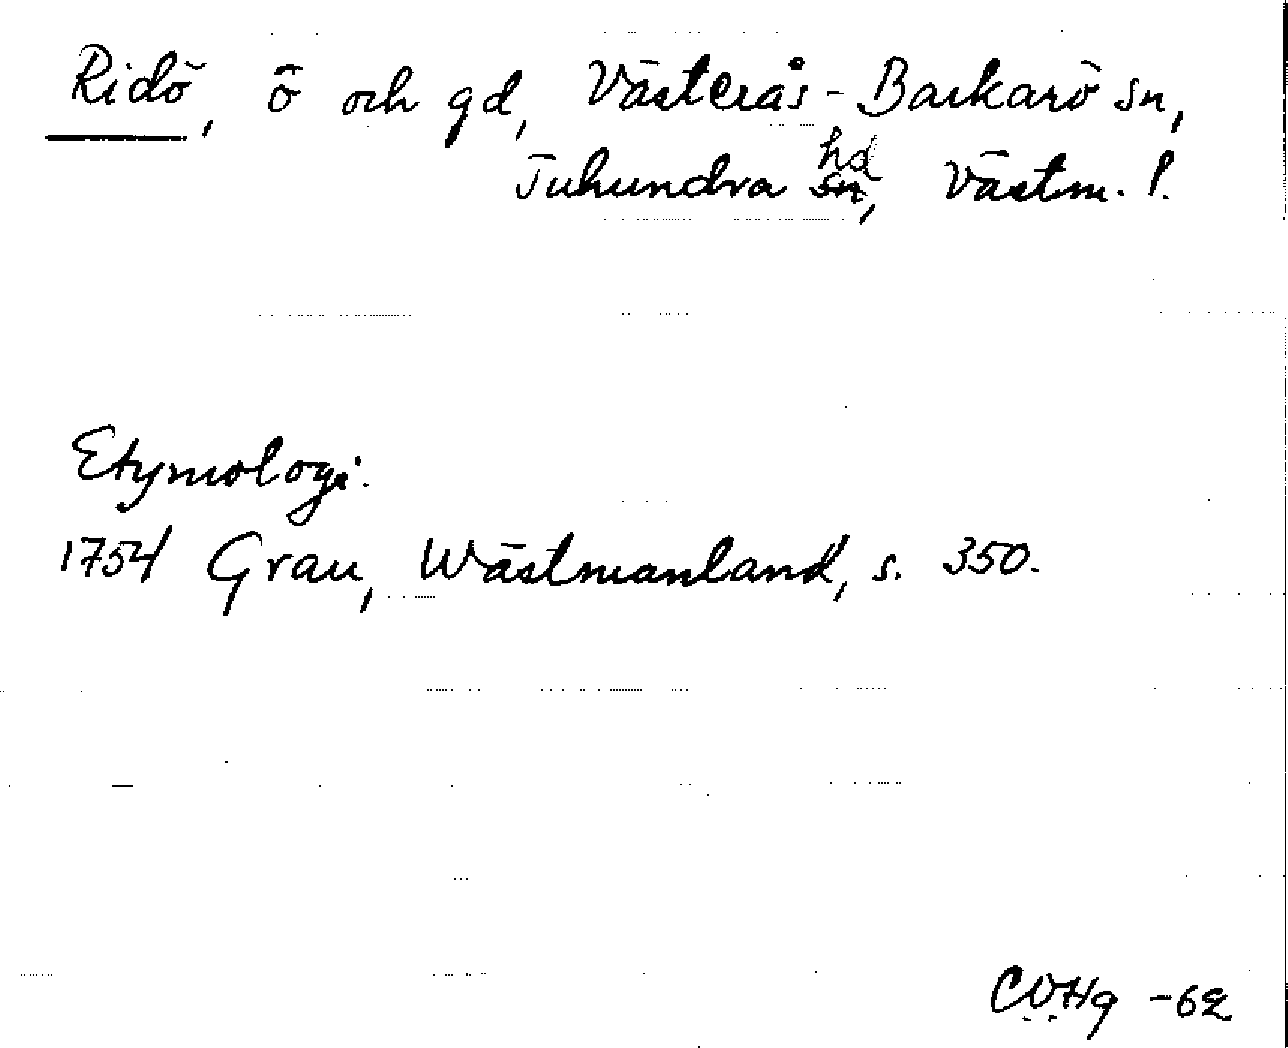 Ridö, ö och gd, Västerås-Barkarö sn,
Tuhundra sn hd, Västm. l.
Etymologi.
1754 Grau, Wästmanland, s. 350.
-62